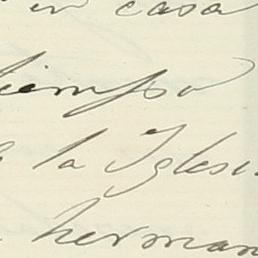 en casa
tiempo
la Iglesi
herman